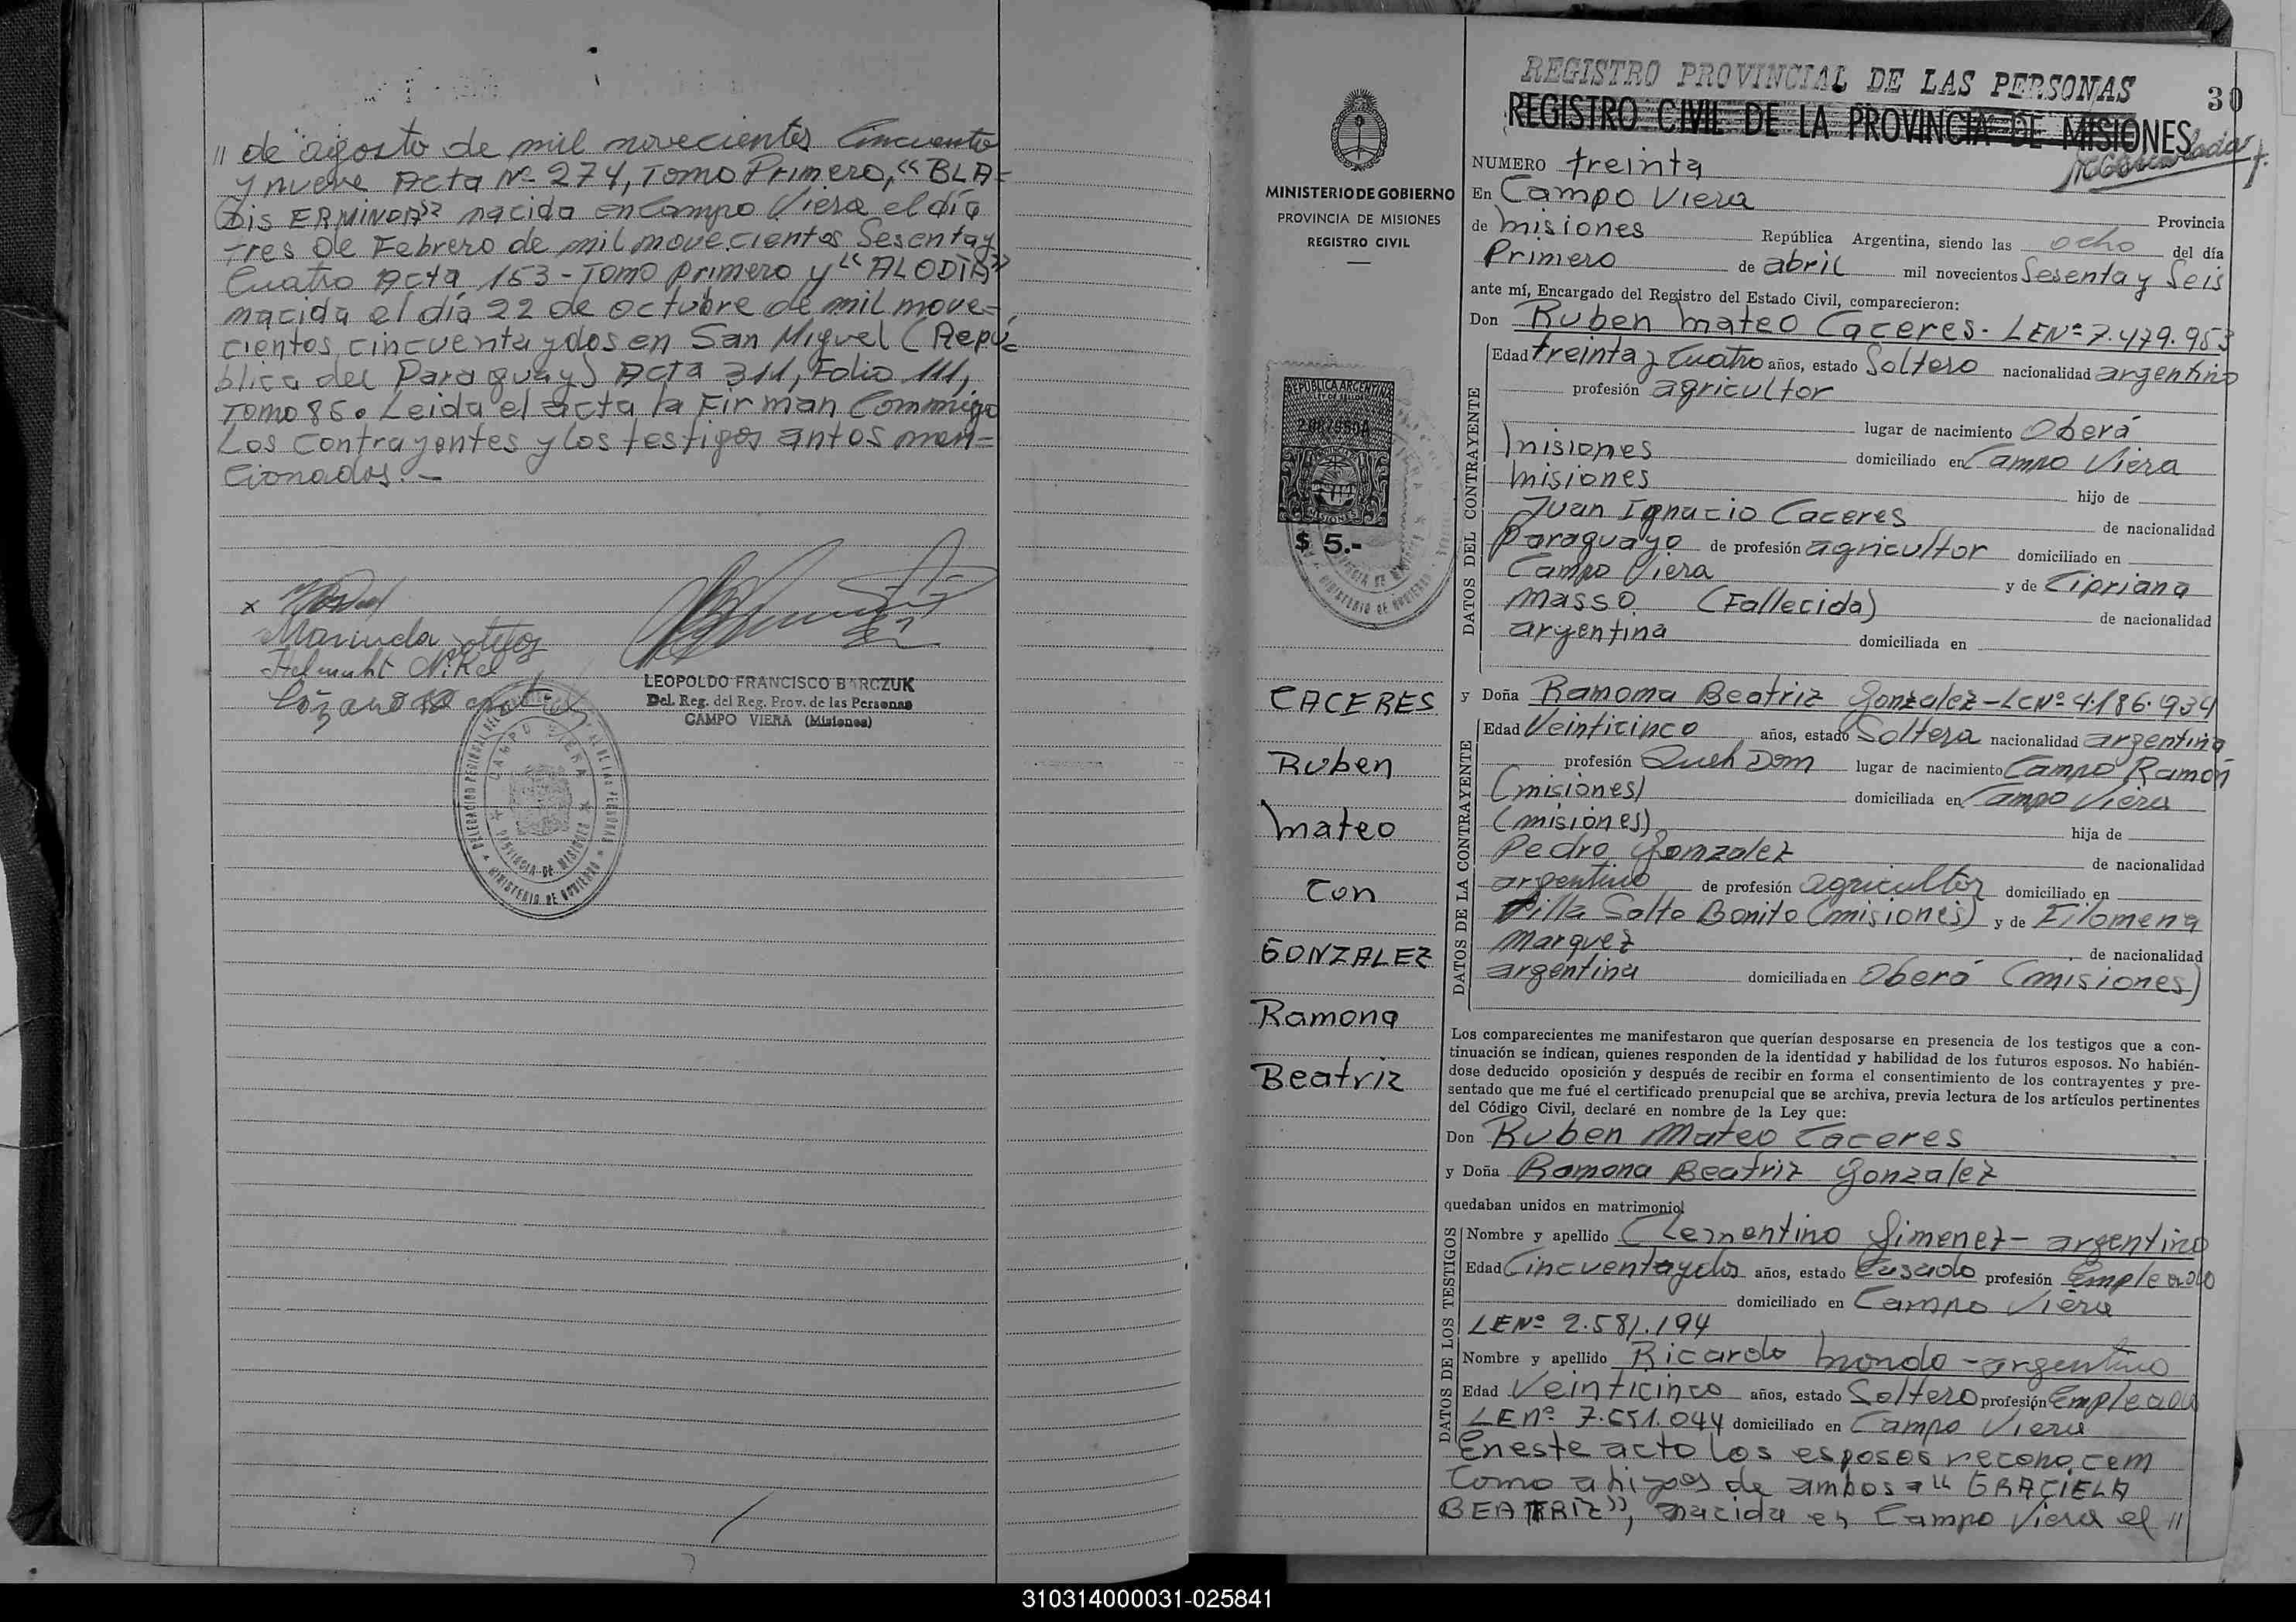 // de agosto de mil novecientos Cincuenta
y nueve Acta Nº 274, Tomo Primero, "BLA=
DIS ERMINDA" nacida en Campo Viera el día
Tres De Febrero de mil novecientos Sesenta y
Cuatro Acta 153 - Tomo primero y "ALODIA"
nacida el día 22 de octubre de mil nove=
cientos cincuenta y dos en San Miguel (Repú=
blica del Paraguay) Acta 311, Folio 111,
Tomo 85. Leida el acta la Firman Commigo
Los Contrayentes y los testigos antos men=
cionados. -
x
Helmuht Nikel
LEOPOLDO FRANCISCO BARCZUK
Del. Reg. del Reg. Prov. de las Personas
CAMPO VIERA (Misiones)
CAMPO VIERA
PROVINCIA DE MISIONES
MINISTERIO DE GOBIERNO
MINISTERIO DE GOBIERNO
PROVINCIA DE MISIONES
REGISTRO CIVIL
REPUBLICA ARGENTINA
MISIONES
$ 5.-
CACERES
Ruben
Mateo
Con
GONZALEZ
Ramona
Beatriz
REGISTRO PROVINCIAL DE LAS PERSONAS
30
REGISTRO CIVIL DE LA PROVINCIA DE MISIONES
NUMERO treinta
En Campo Viera
Provincia
de Misiones República Argentina, siendo las ocho del día
Primero de abril mil novecientos Sesenta y Seis
ante mí, Encargado del Registro del Estado Civil, comparecieron:
Don Ruben Mateo Caceres - LE Nº 7.479.953
DATOS DEL CONTRAYENTE
Edad treinta y Cuatro años, estado Soltero nacionalidad argentino
profesión agricultor
lugar de nacimiento Oberá
Misiones domiciliado en Campo Viera
Misiones hijo de
Juan Ignacio Caceres de nacionalidad
Paraguayo de profesión agricultor domiciliado en
Campo Viera y de Cipriana
Masso (Fallecida) de nacionalidad
argentina domiciliada en
y Doña Ramona Beatriz Gonzalez - LC Nº 4.186.934
DATOS DE LA CONTRAYENTE
Edad Veinticinco años, estado Soltera nacionalidad argentina
profesión Queh Dom lugar de nacimiento Campo Ramón
(Misiones) domiciliada en Campo Viera
(Misiones) hija de
Pedro Gonzalez de nacionalidad
argentino de profesión agricultor domiciliado en
Villa Salto Bonito (Misiones) y de Filomena
Marquez de nacionalidad
argentina domiciliada en Oberá (Misiones)
Los comparecientes me manifestaron que querían desposarse en presencia de los testigos que a con-
tinuación se indican, quienes responden de la identidad y habilidad de los futuros esposos. No habién-
dose deducido oposición y después de recibir en forma el consentimiento de los contrayentes y pre-
sentado que me fué el certificado prenupcial que se archiva, previa lectura de los artículos pertinentes
del Código Civil, declaré en nombre de la Ley que:
Don Ruben Mateo Caceres
y Doña Ramona Beatriz Gonzalez
quedaban unidos en matrimonio
DATOS DE LOS TESTIGOS
Nombre y apellido Clementino Gimenez - argentino
Edad Cincuenta y dos años, estado Casado profesión Empleado
domiciliado en Campo Viera
LE Nº 2.581.194
Nombre y apellido Ricardo Mondo - argentino
Edad Veinticinco años, estado Soltero profesión Empleado
LE Nº 7.651.044 domiciliado en Campo Viera
En este acto los esposos reconocem
Como a hijos de ambos a "GRACIELA
BEATRIZ", nacida en Campo Viera el //
310314000031-025841